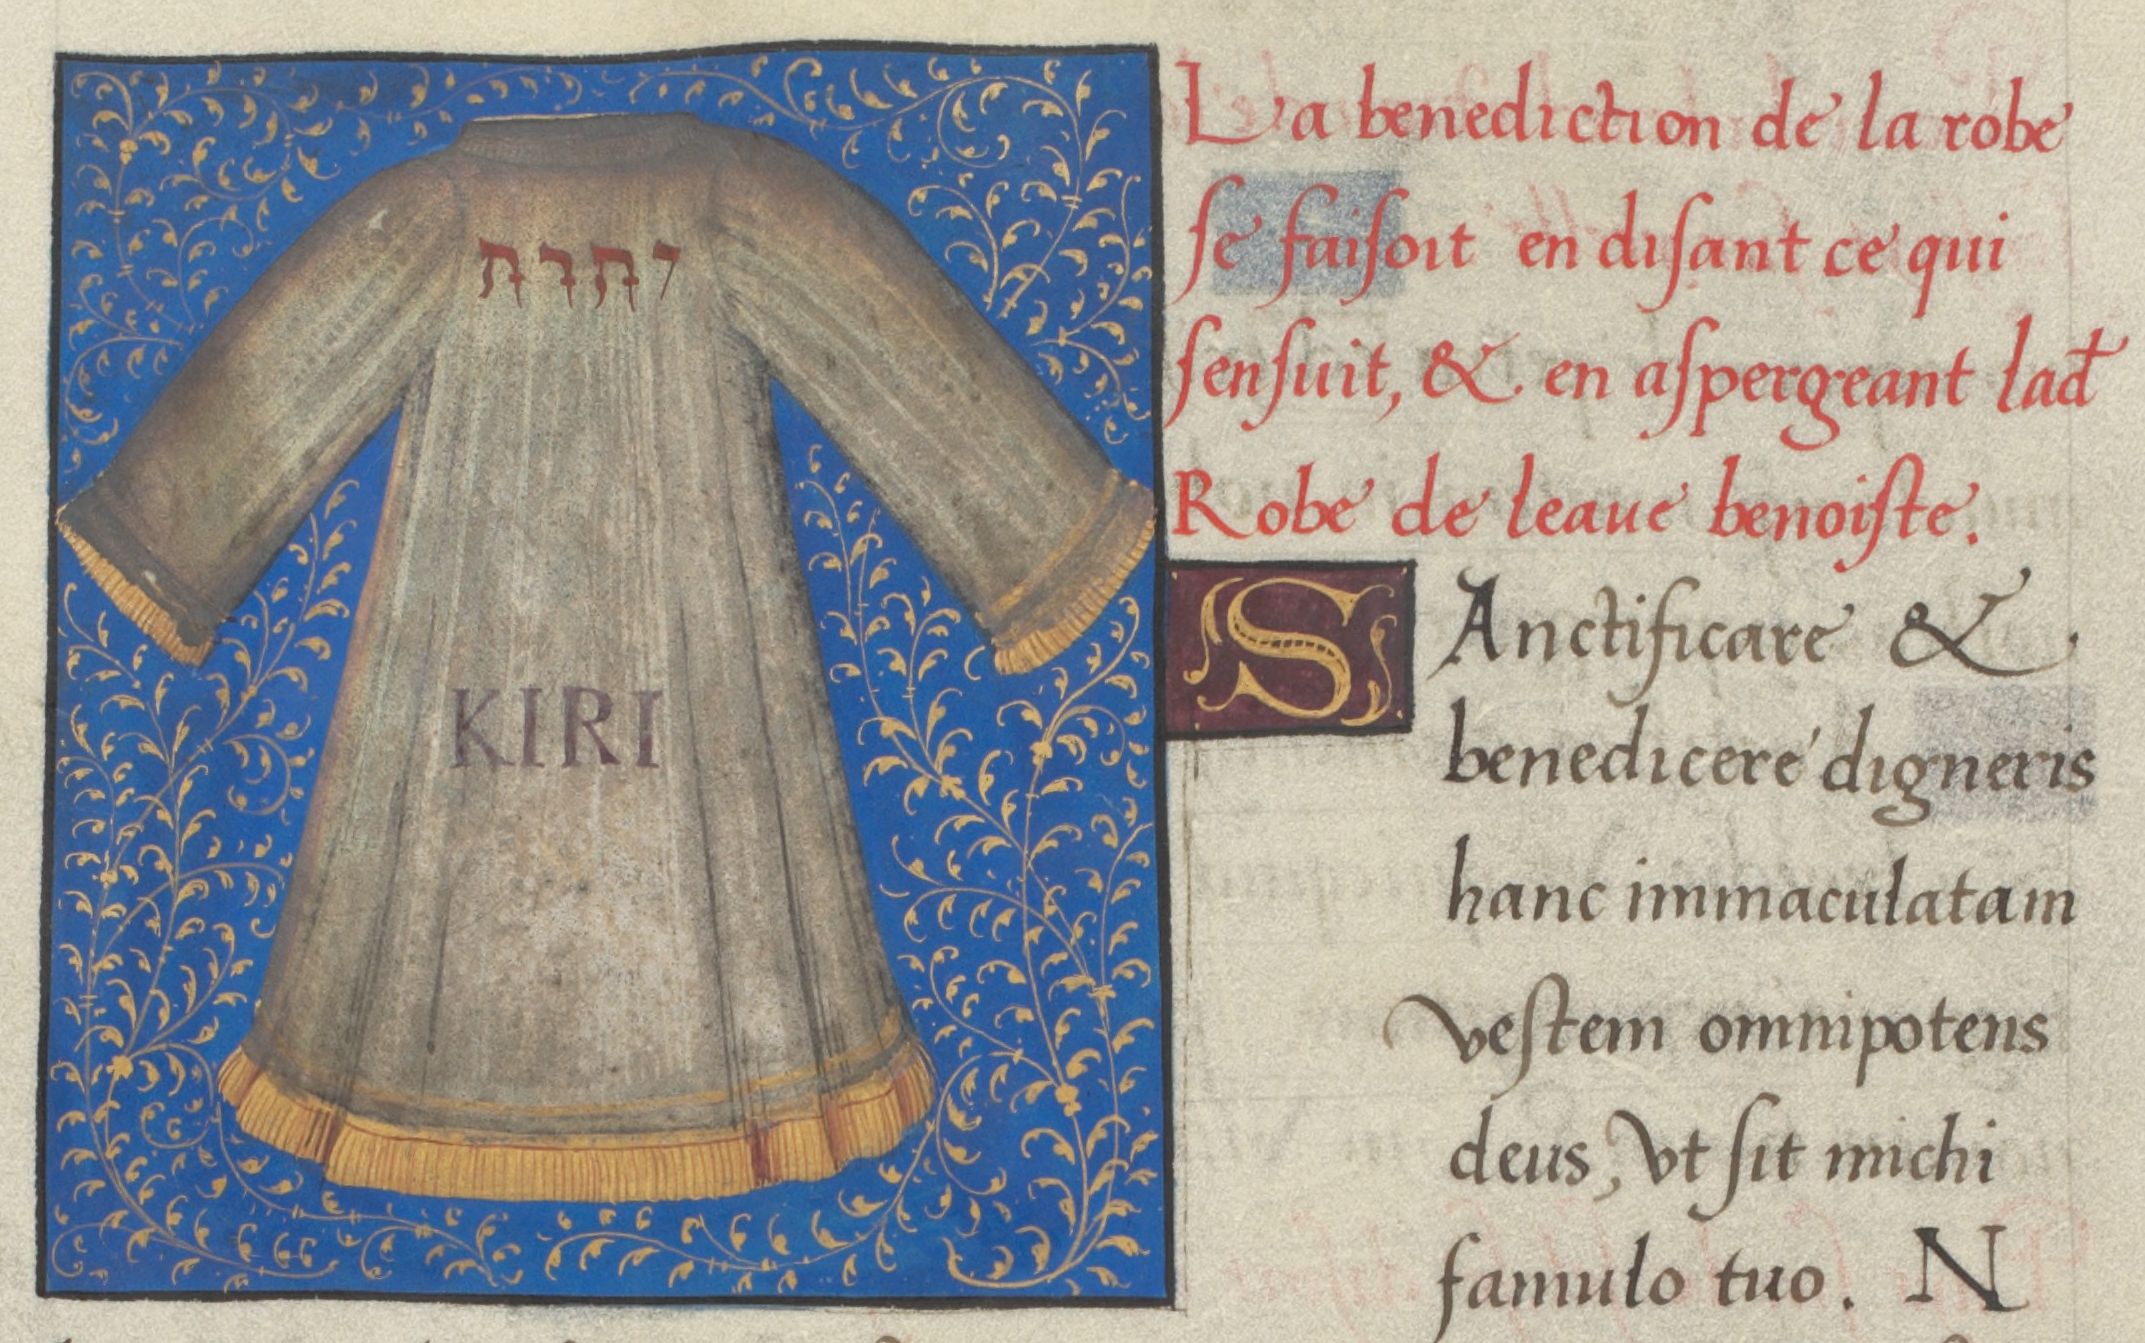 יהוה
KIRI
La benediction de la robe
se faisoit en disant ce qui
sensuit, & en aspergeant lad̃
Robe de leaue benoiste.
SAnctificare &
benedicere digneris
hanc immaculatam
vestem omnipotens
deus, vt sit michi
famulo tuo. N